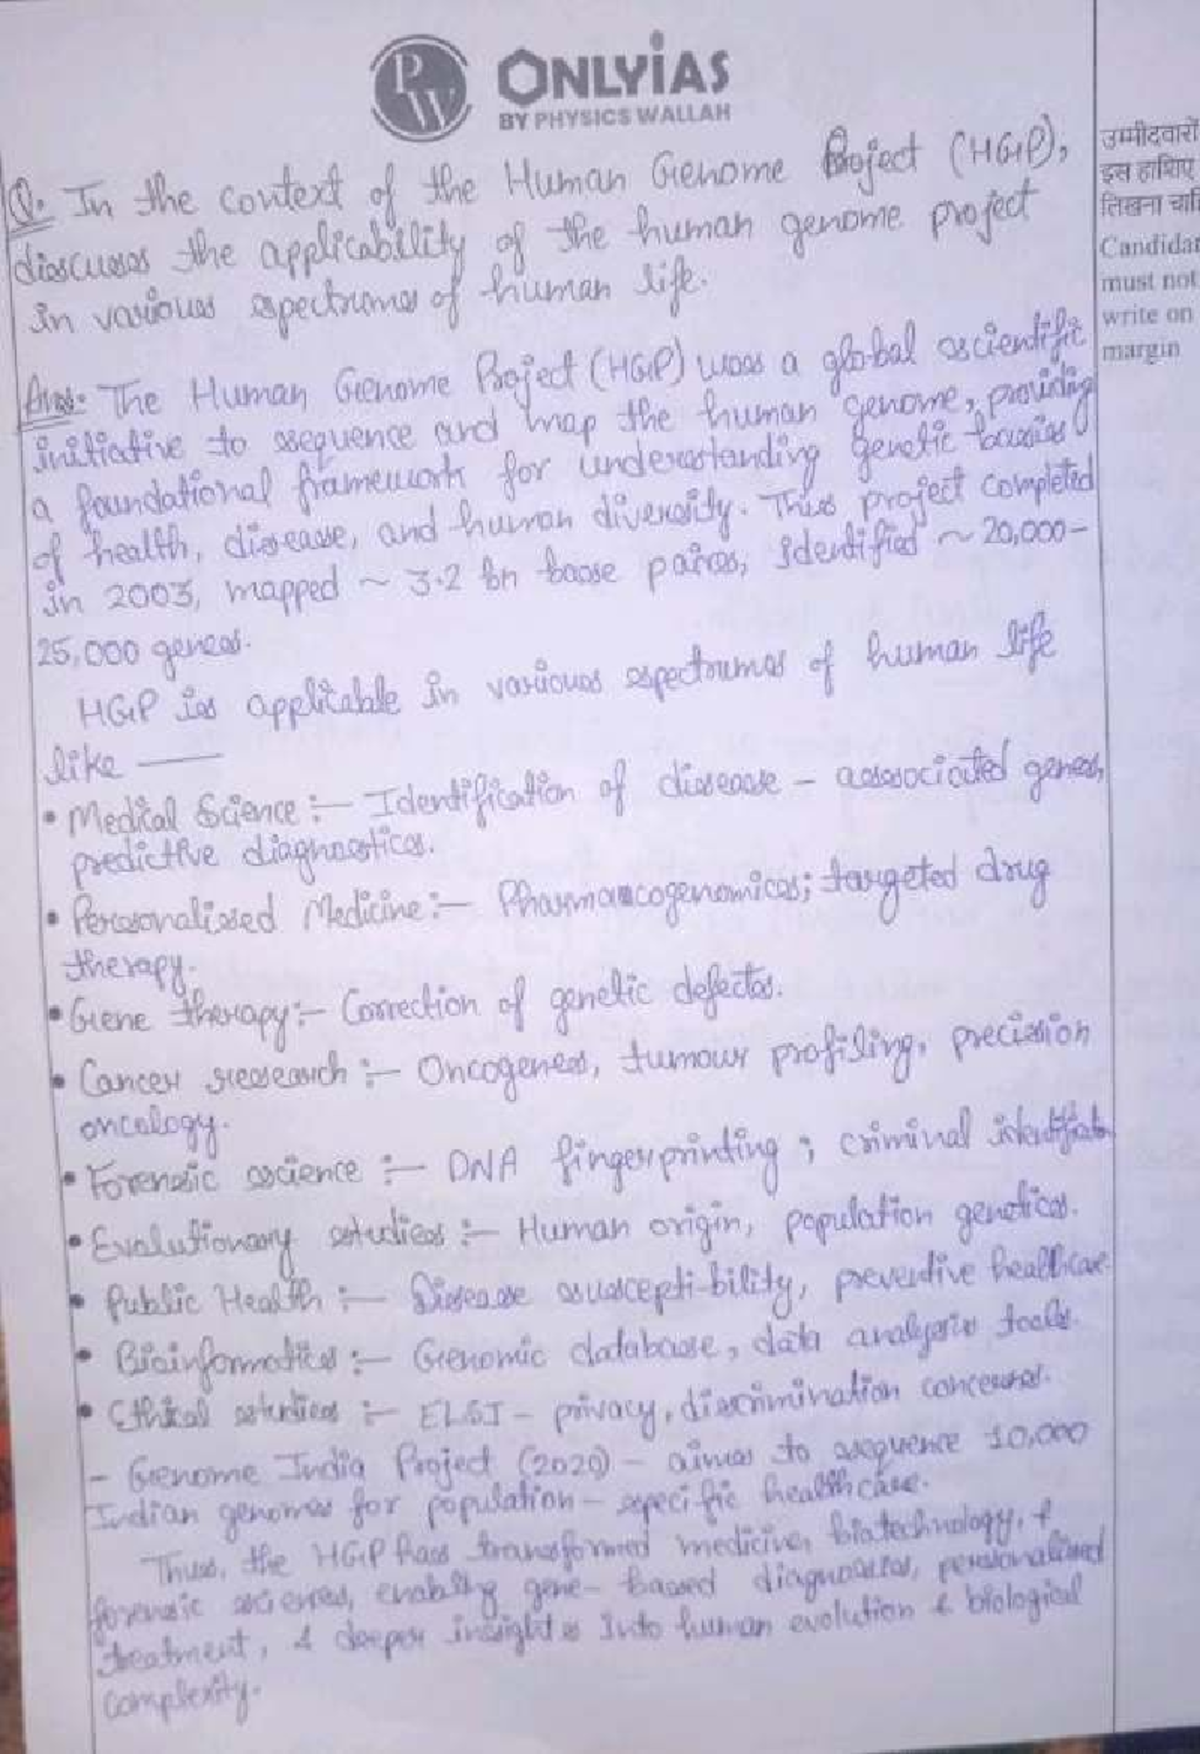 PW ONLYIAS
BY PHYSICS WALLAH
उम्मीदवारों
इस हाशिए
लिखना चाहि
Candidat
must not
write on
margin
Q. In the context of the Human Genome Project (HGP),
discuss the applicability of the human genome project
in various spectrums of human life.
Ans:- The Human Genome Project (HGP) was a global scientific
initiative to sequence and map the human genome, providing
a foundational framework for understanding genetic bassies
of health, disease, and human diversity. This project completed
in 2003, mapped ~ 3.2 bn base paires, identified ~ 20,000-
25,000 genes.
HGP is applicable in various spectrums of human life
like —
• Medical Science :- Identification of disease - associated genes,
predictive diagnostics.
• Personalised Medicine :- Pharmacogenomics; targeted drug
therapy.
• Gene therapy :- Correction of genetic defects.
• Cancer research :- Oncogenes, tumour profiling, precision
oncology.
• Forensic science :- DNA fingerprinting ; criminal
• Evolutionary studies :- Human origin, population genetics.
• Public Health :- Disease suscepti-bility, preventive healthcare.
• Bioinformatics :- Genomic database, data analysis tools.
• Ethical studies :- ELSI - privacy, discrimination concerns.
- Genome India Project (2020) - aims to sequence 10,000
Indian genomes for population - specific healthcare.
Thus, the HGP has transformed medicine, biotechnology, &
forensic sciences, enabling gene - based diagnoses, personalised
treatment, & deeper insights into human evolution & biological
complexity.